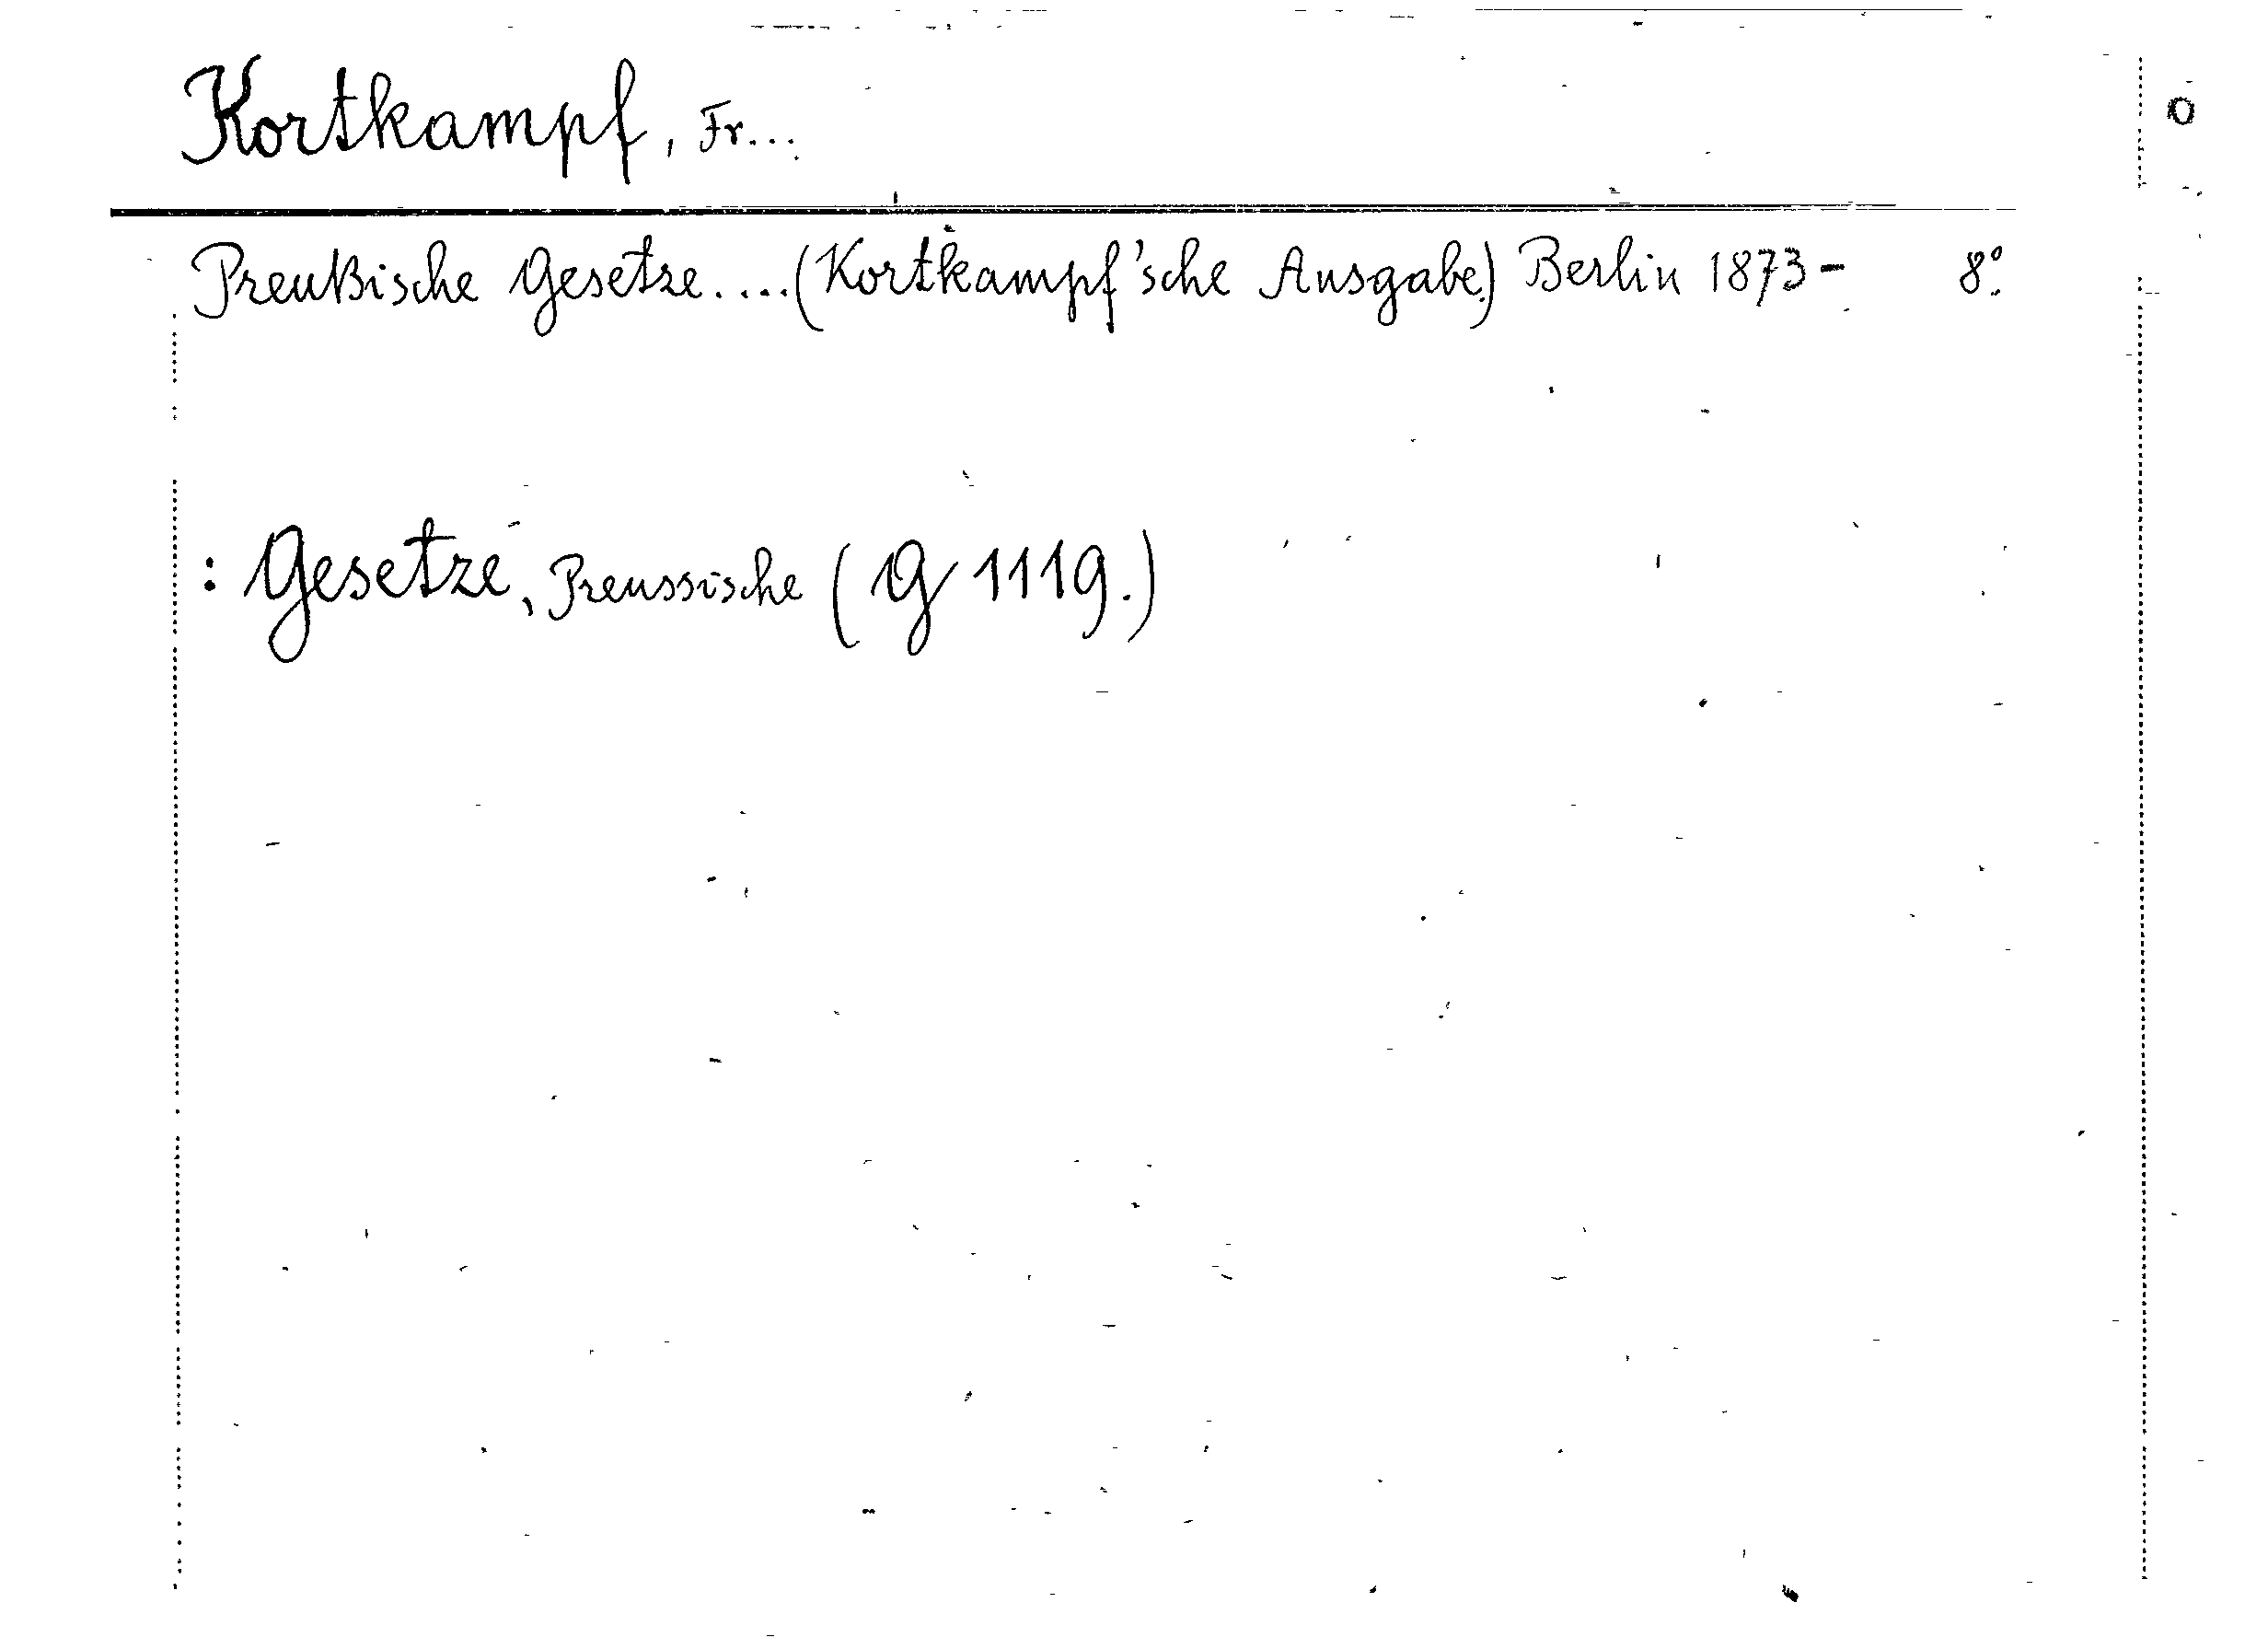 Kortkampf, Fr...
O
Preußische Gesetze....(Kortkampf'sche Ausgabe.) Berlin 1873- 8°.
: Gesetze, Preussische (G 1119.)